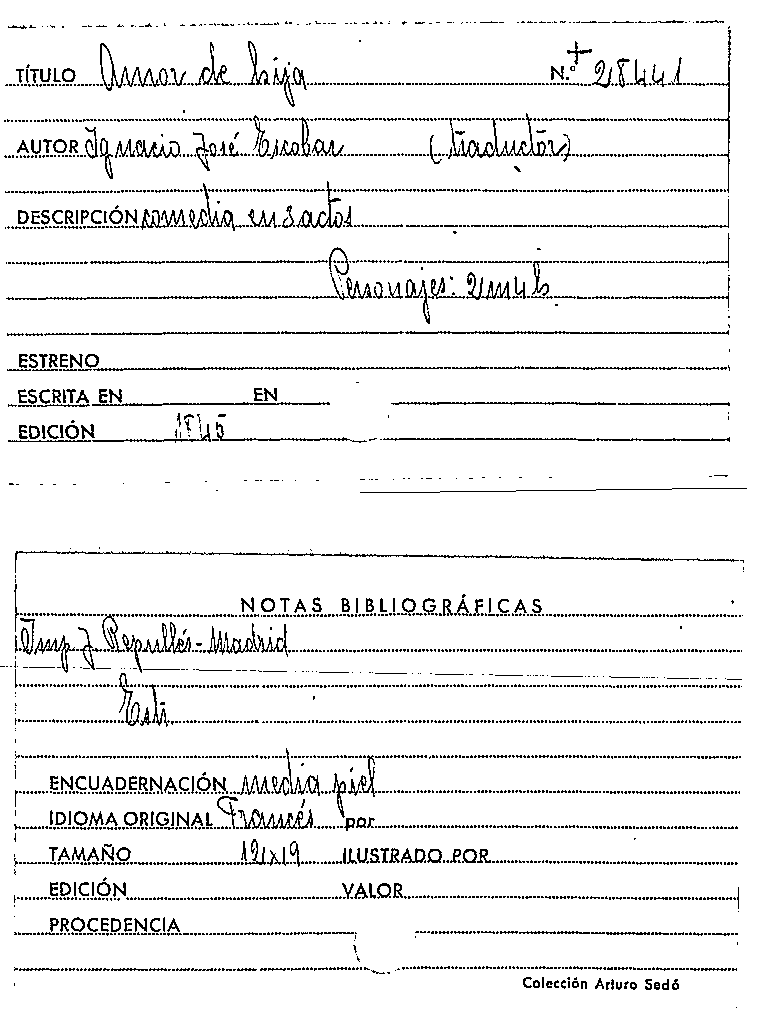 TÍTULO Amor de hija N.º + 28441
AUTOR Ignacio José Escobar (traductor)
DESCRIPCIÓN comedia en 3 actos
Personajes: 2m4h
ESTRENO
ESCRITA EN EN
EDICIÓN 1845
NOTAS BIBLIOGRÁFICAS
Imp J Repullés - Madrid
ENCUADERNACIÓN media piel
IDIOMA ORIGINAL Francés por
TAMAÑO 12x19 ILUSTRADO POR
EDICIÓN VALOR
PROCEDENCIA
Colección Arturo Sedó